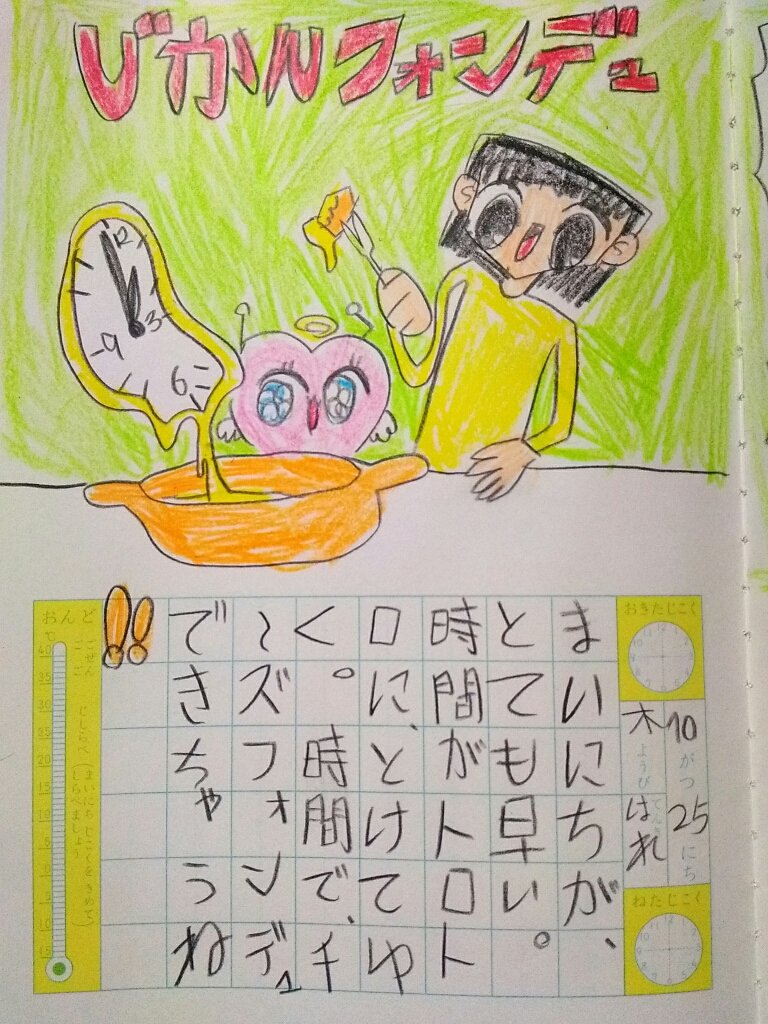 じかんフォンデュ
12
3
9
6
おきたじこく
10がつ25にち
木ようび
はれ
ねたじこく
まいにちが、
とても早い。
時間がトロト
ロに、とけてゆ
く。時間で、チ
〜ズフォンデュ
できちゃうね
!!
おんど
℃
ごぜん
ごご
じしらべ
(まいにちじこくをきめて
しらべましょう)
40
35
30